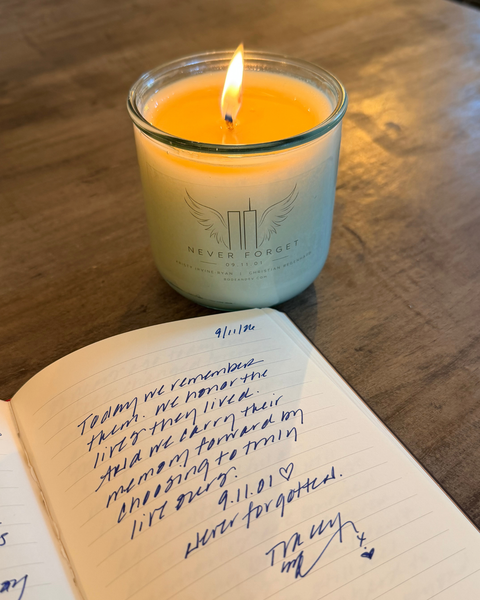 NEVER FORGET
09.11.01
9/11/26
Today we remember
them. We honor the
lives they lived.
And we carry their
memory forward by
choosing to truly
live ours.
9.11.01 ♡
Never forgotten.
Tracy